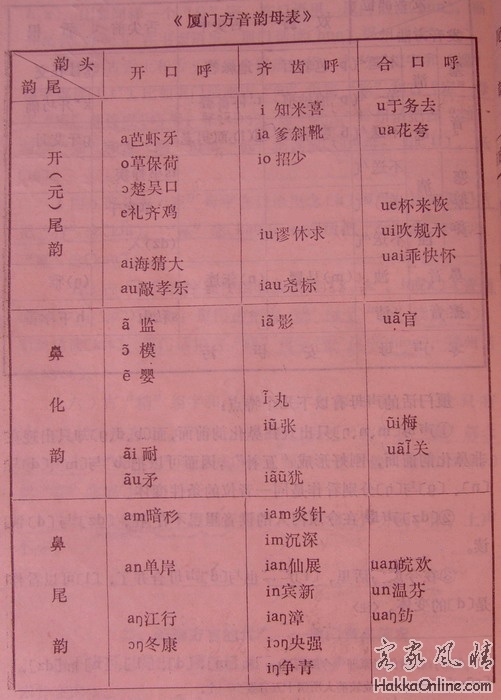 《厦门方音韵母表》
韵头 开口呼 齐齿呼 合口呼
韵尾
i 知米喜 u于务去
a芭虾牙 ia 爹斜靴 ua花夸
o草保荷 io 招少
开(元)尾韵 ɔ楚吴口
e礼齐鸡 ue杯来恢
iu谬休求 ui吹规水
ai海猜大 uai乖快怀
au敲孝乐 iau尧标
ã 监 iã影 uã官
鼻化韵 ɔ̃ 模
ẽ 婴
ĩ丸
iũ张 ũi梅
ãi 耐 uãĩ关
ãu矛 iãũ犹
am暗形 iam炎针
im沉深
鼻尾韵 an单岸 ian仙展 uan皖欢
in宾新 un温芬
aŋ江行 iaŋ漳 uaŋ钫
ɔŋ冬康 iɔŋ央强
iŋ争青
客家風情
HakkaOnline.com